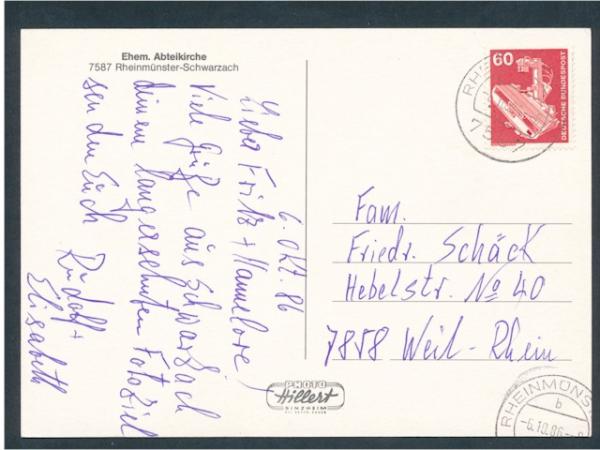 Ehem. Abteikirche
7587 Rheinmünster-Schwarzach
6. Okt. 86
Lieber Fritz + Hannelore,
Viele Grüße aus Schwarzach
deinem langersehnten Fotoziel
senden Euch Rudolf +
Elisabeth
60
DEUTSCHE BUNDESPOST
Fam.
Friedr. Schäck
Hebelstr. No 40
7858 Weil-Rhein
PHOTO
Hillert
SINZHEIM
RHEINMÜNS
b
-6.10.86